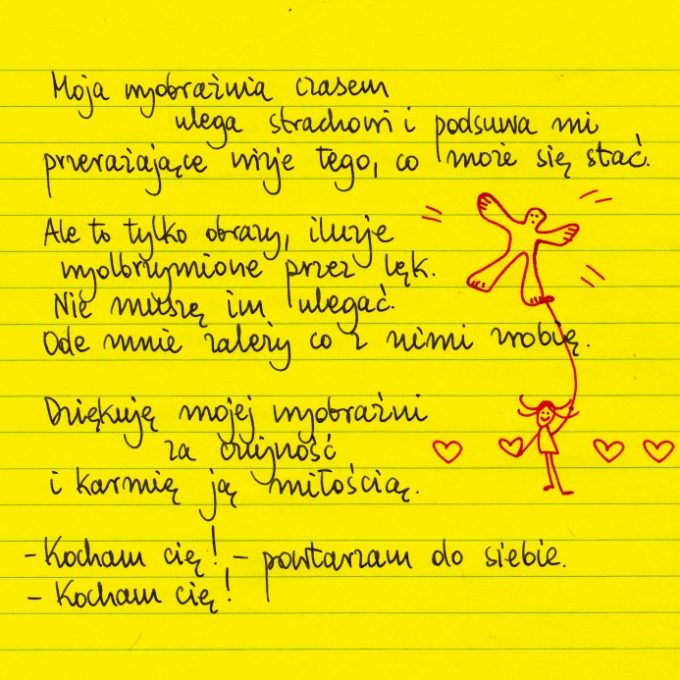 Moja wyobraźnia czasem
ulega strachowi i podsuwa mi
przerażające wizje tego, co może się stać.
Ale to tylko obrazy, iluzje
wyolbrzymione przez lęk.
Nie muszę im ulegać.
Ode mnie zależy co z nimi zrobię.
Dziękuję mojej wyobraźni
za czujność
i karmię ją miłością.
- Kocham cię! - powtarzam do siebie.
- Kocham cię!